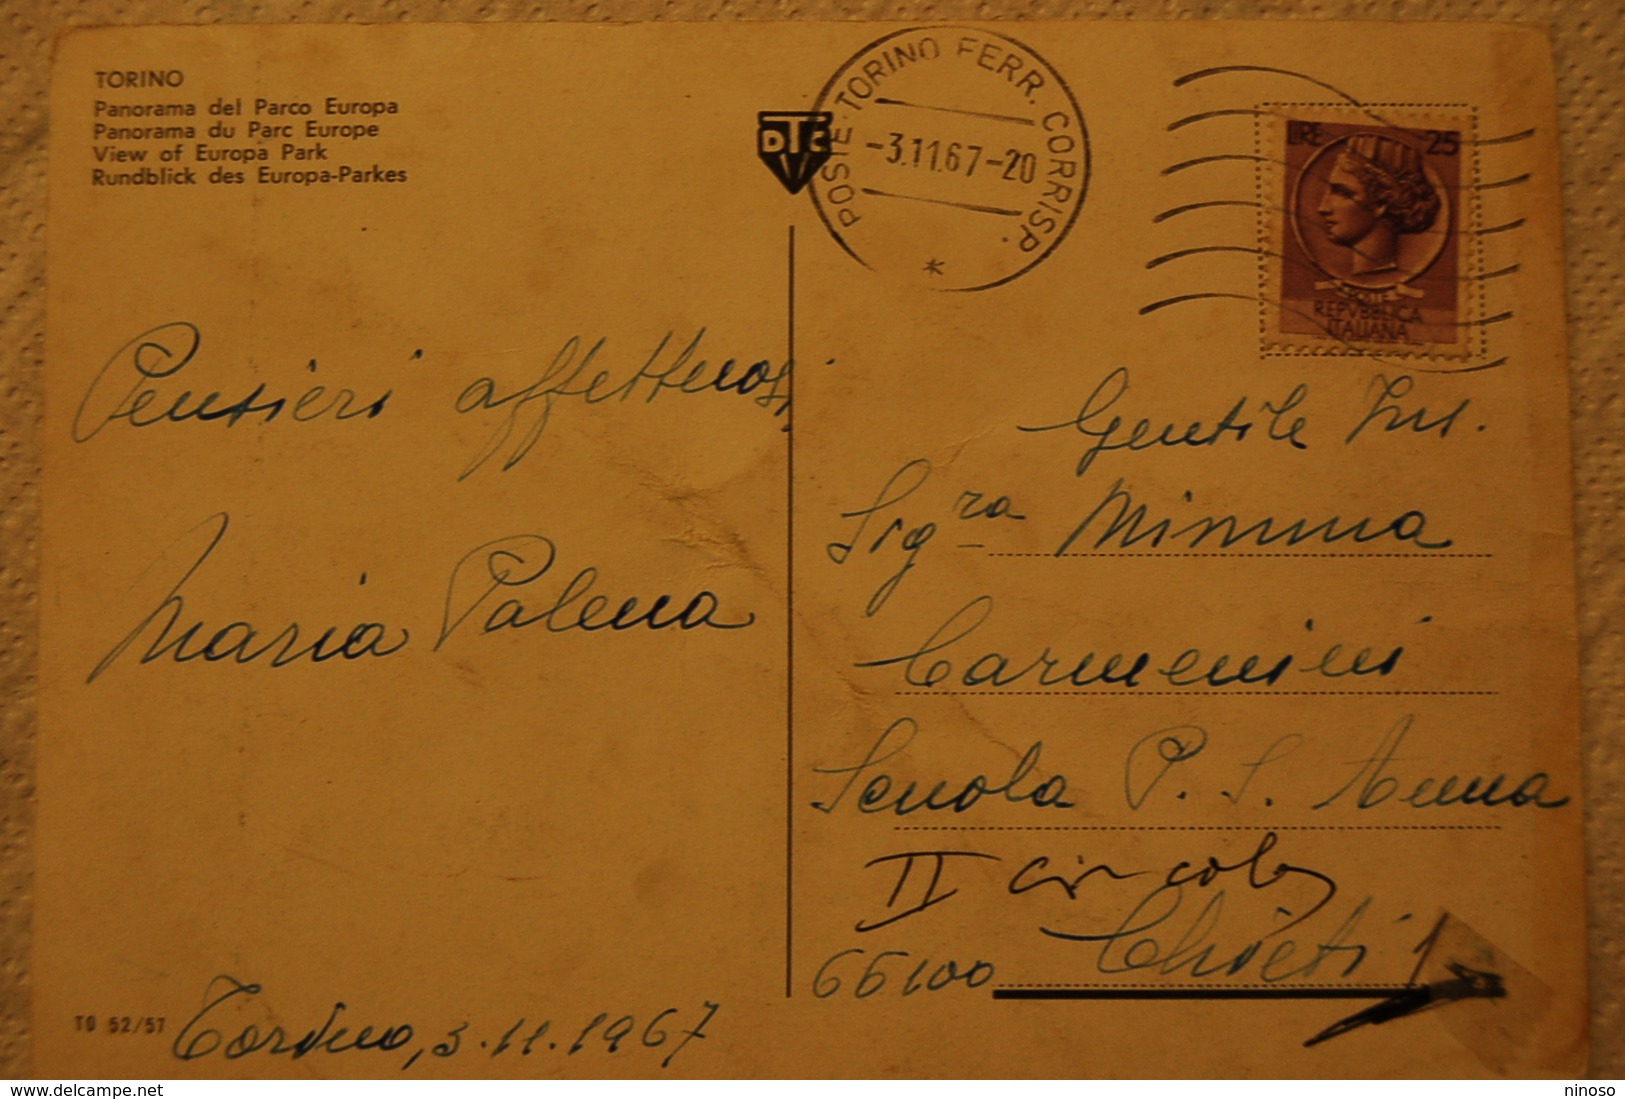 TORINO
Panorama del Parco Europa
Panorama du Parc Europe
View of Europa Park
Rundblick des Europa-Parkes
DTC
POSTE-TORINO FERR. CORRISP.
-3.11.67-20
LIRE 25
POSTE
REPVBBLICA
ITALIANA
Pensieri affettuosi
Maria Palena
Torino, 3.11.1967
TO 52/57
Gentile Ins.
Sig.ra Mimma
Carmenini
Scuola P. S. Anna
II circolo
66100 Chieti
www.delcampe.net
ninoso